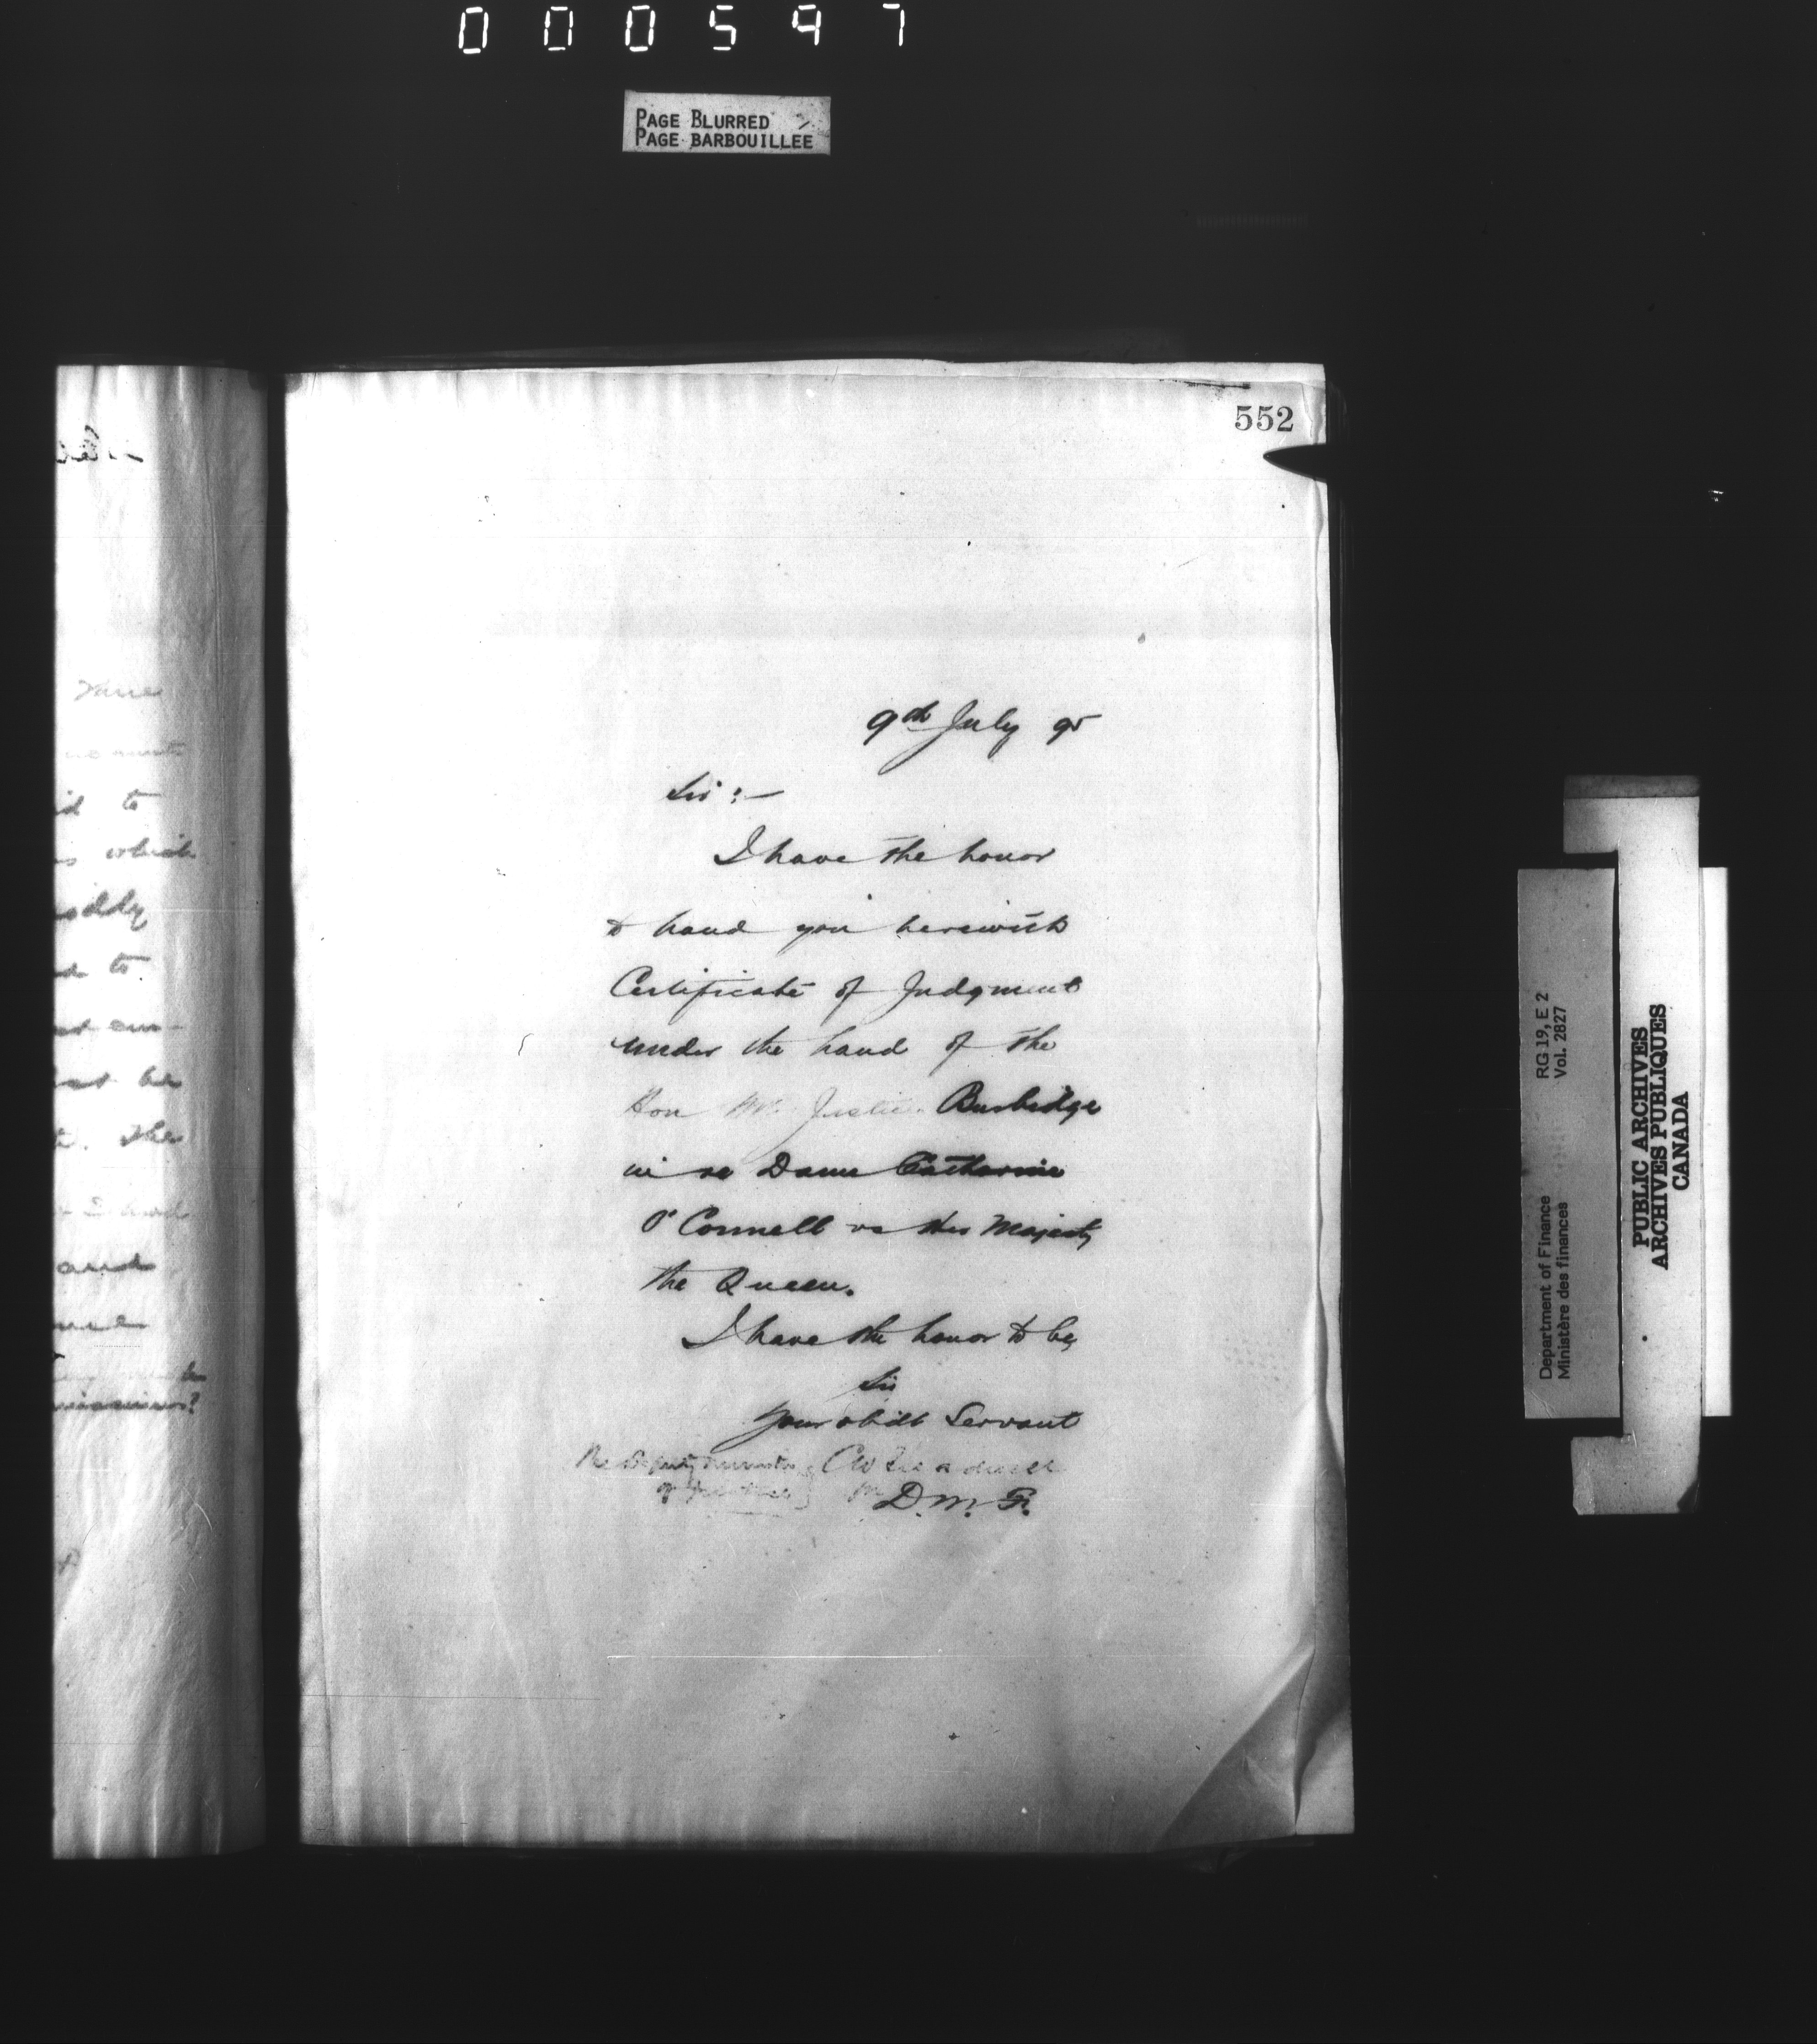 000597
PAGE BLURRED
PAGE BARBOUILLÉE
552
9th July 95
Sir :—
I have the honor
to hand you herewith
Certificate of Judgment
under the hand of the
Hon Mr. Justice Burbidge
in re Dame Catharine
O'Connell vs Her Majesty
the Queen.
I have the honor to be,
Sir
Your obdt Servant
The Deputy Minister
of Justice
D.M.F.
id to
which
d to
be
The
and
Department of Finance RG 19, E 2
Ministère des finances Vol. 2827
PUBLIC ARCHIVES
ARCHIVES PUBLIQUES
CANADA